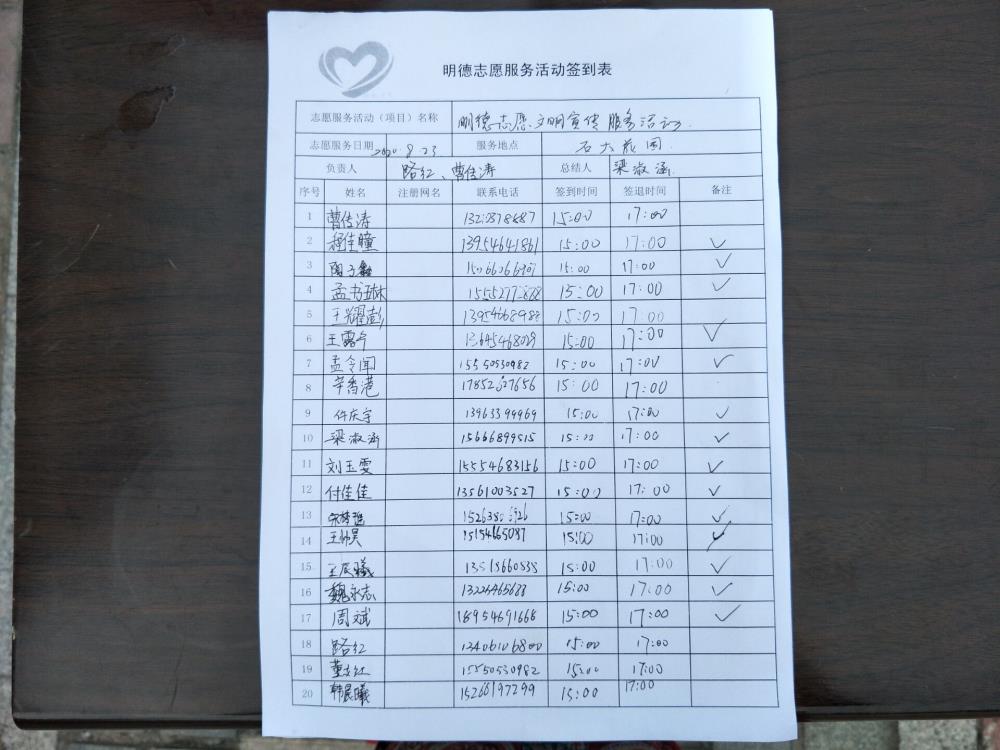 明德志愿服务活动签到表
志愿服务活动（项目）名称 明德志愿文明宣传服务活动
志愿服务日期 2020.8.23 服务地点 石大花园
负责人 路红、曹传涛 总结人 梁淑涵
序号 姓名 注册网名 联系电话 签到时间 签退时间 备注
1 曹传涛 15:00 17:00
2 程佳瞳 13954641861 15:00 17:00 ✓
3 15:00 17:00 ✓
4 孟书琳 15:00 17:00 ✓
5 王耀彭 13954668988 15:00 17:00
6 王露今 15:00 17:00 ✓
7 孟令闻 15550530982 15:00 17:00 ✓
8 辛香港 15:00 17:00
9 任庆宇 13963394969 15:00 17:00 ✓
10 梁淑涵 15666899515 15:00 17:00 ✓
11 刘玉雯 15554683156 15:00 17:00 ✓
12 付佳佳 13561003527 15:00 17:00 ✓
13 宋梦瑶 15:00 17:00 ✓
14 王帅昊 15154665087 15:00 17:00 ✓
15 王辰曦 15:00 17:00 ✓
16 魏永志 15:00 17:00 ✓
17 周斌 18954691668 15:00 17:00 ✓
18 路红 13406106800 15:00 17:00
19 董志红 15550530982 15:00 17:00
20 韩晨曦 15266197299 15:00 17:00